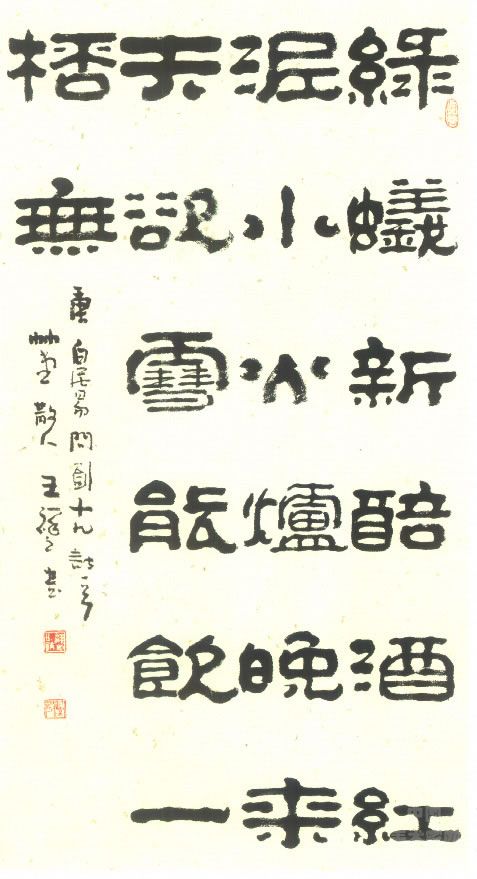 綠蟻新醅酒紅
泥小火爐晚来
天欲雪能飲一
桮無
唐白居易問劉十九詩一首
散人王書